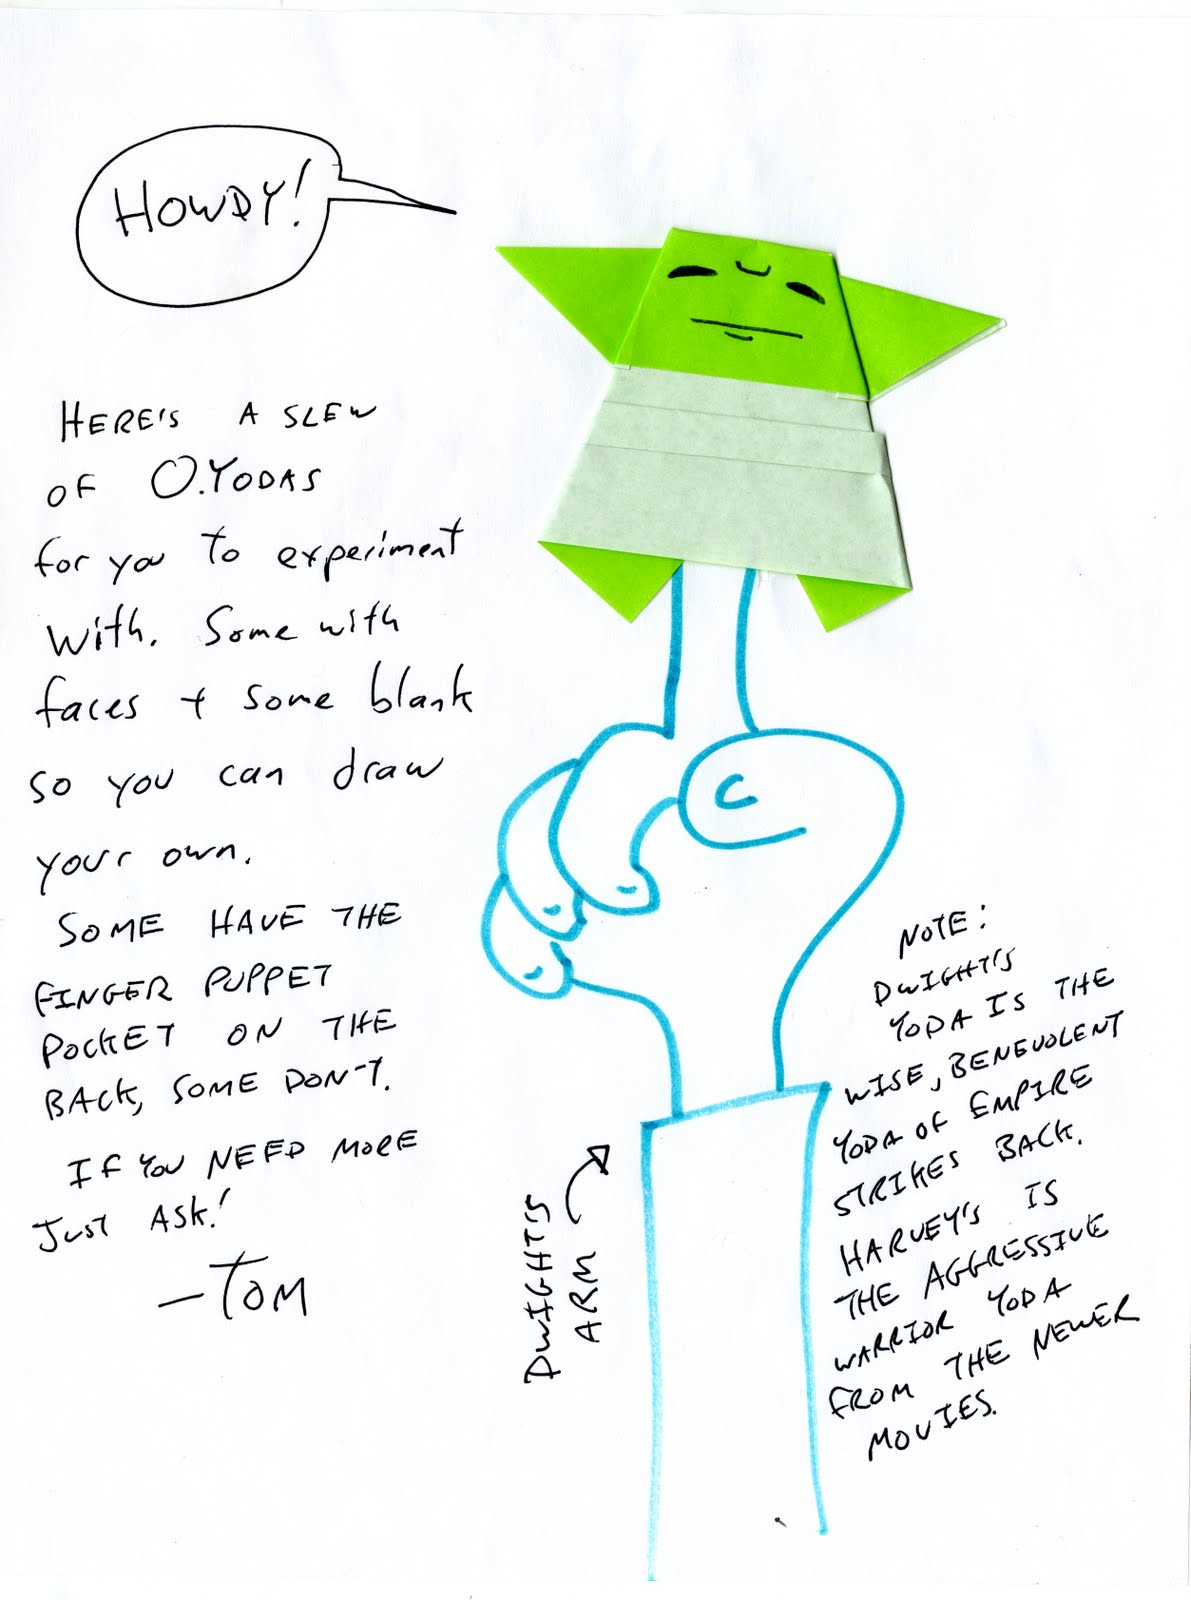 HOWDY!
HERE'S A SLEW
OF O.YODAS
for you to experiment
with. Some with
faces + some blank
so you can draw
your own.
SOME HAVE THE
FINGER PUPPET
POCKET ON THE
BACK, SOME DON'T.
IF YOU NEED MORE
JUST ASK!
—TOM
DWIGHT'S
ARM
NOTE:
DWIGHT'S
YODA IS THE
WISE, BENEVOLENT
YODA OF EMPIRE
STRIKES BACK.
HARVEY'S IS
THE AGGRESSIVE
WARRIOR YODA
FROM THE NEWER
MOVIES.